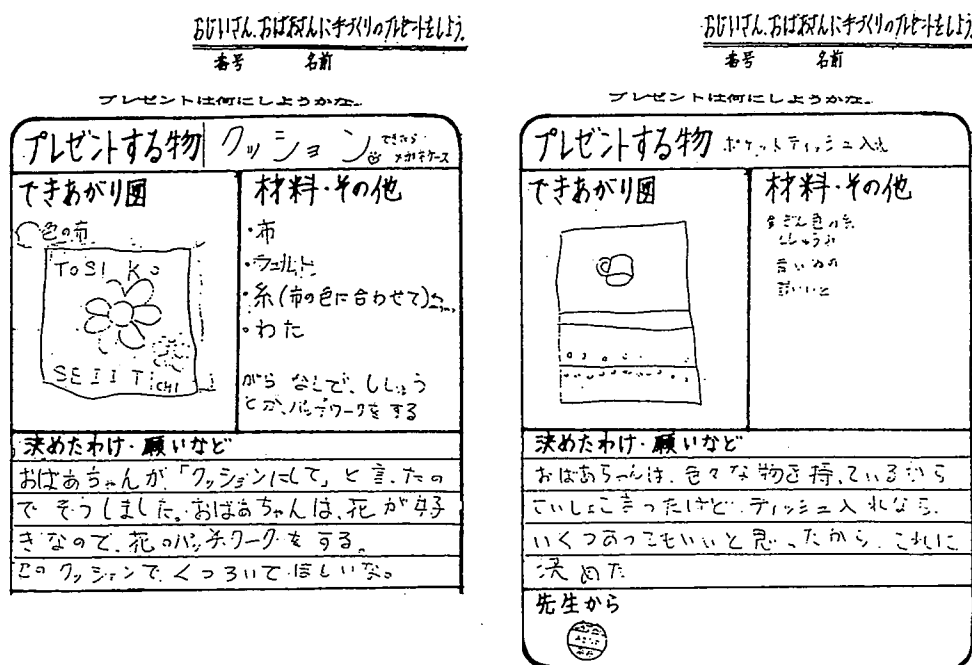 おじいさん、おばあさんに手づくりのプレゼントをしよう。
番号 名前
プレゼントは何にしようかな。
プレゼントする物 クッション できたら メガネケース
できあがり図
色の布
TOSIKO
SEIITICHI
材料・その他
・布
・フェルト
・糸(布の色に合わせて)
・わた
がら なしで、ししゅう
とか、パッチワークを する
決めたわけ・願いなど
おばあちゃんが「クッションにして」と言ったの
で そうしました。おばあちゃんは、花が好
きなので、花のパッチワークを する。
このクッションで、くつろいで ほしいな。
おじいさん、おばあさんに手づくりのプレゼントをしよう。
番号 名前
プレゼントは何にしようかな。
プレゼントする物 ポケットティッシュ入れ
できあがり図
材料・その他
ししゅう
決めたわけ・願いなど
おばあちゃんは、色々な物を持っているから
けど ティッシュ入れなら
いくつあってもいいと思ったから、これに
決めた
先生から